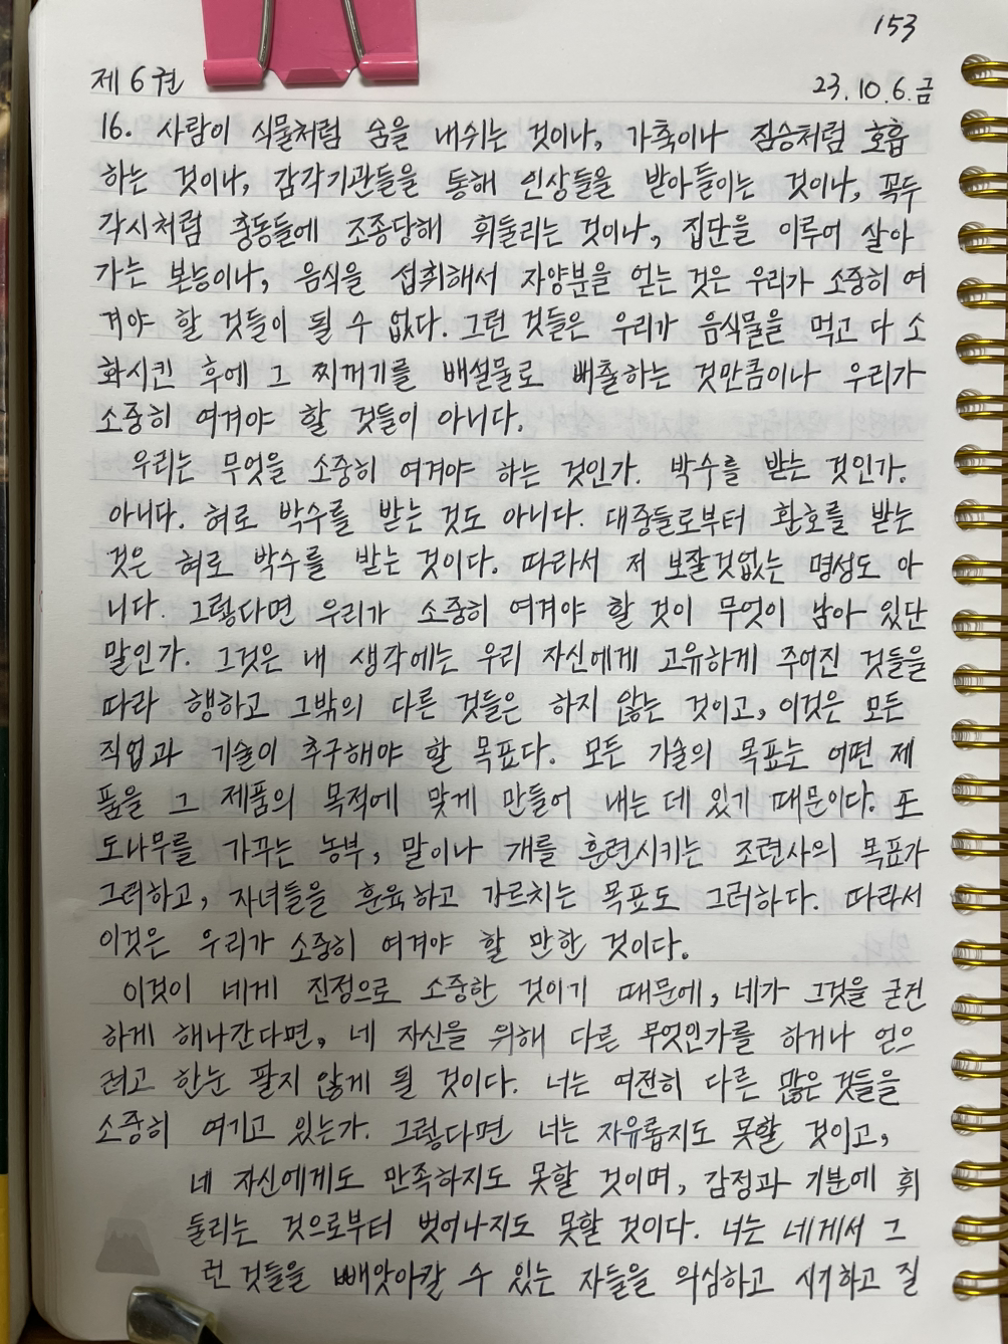 153
제6권 23.10.6.금
16. 사람이 식물처럼 숨을 내쉬는 것이나, 가축이나 짐승처럼 호흡
하는 것이나, 감각기관들을 통해 인상들을 받아들이는 것이나, 꼭두
각시처럼 충동들에 조종당해 휘둘리는 것이나, 집단을 이루어 살아
가는 본능이나, 음식을 섭취해서 자양분을 얻는 것은 우리가 소중히 여
겨야 할 것들이 될 수 없다. 그런 것들은 우리가 음식물을 먹고 다 소
화시킨 후에 그 찌꺼기를 배설물로 배출하는 것만큼이나 우리가
소중히 여겨야 할 것들이 아니다.
우리는 무엇을 소중히 여겨야 하는 것인가. 박수를 받는 것인가.
아니다. 혀로 박수를 받는 것도 아니다. 대중들로부터 환호를 받는
것은 혀로 박수를 받는 것이다. 따라서 저 보잘것없는 명성도 아
니다. 그렇다면 우리가 소중히 여겨야 할 것이 무엇이 남아 있단
말인가. 그것은 내 생각에는 우리 자신에게 고유하게 주어진 것들을
따라 행하고 그밖의 다른 것들은 하지 않는 것이고, 이것은 모든
직업과 기술이 추구해야 할 목표다. 모든 기술의 목표는 어떤 제
품을 그 제품의 목적에 맞게 만들어 내는 데 있기 때문이다. 포
도나무를 가꾸는 농부, 말이나 개를 훈련시키는 조련사의 목표가
그러하고, 자녀들을 훈육하고 가르치는 목표도 그러하다. 따라서
이것은 우리가 소중히 여겨야 할 만한 것이다.
이것이 네게 진정으로 소중한 것이기 때문에, 네가 그것을 굳건
하게 해나간다면, 네 자신을 위해 다른 무엇인가를 하거나 얻으
려고 한눈 팔지 않게 될 것이다. 너는 여전히 다른 많은 것들을
소중히 여기고 있는가. 그렇다면 너는 자유롭지도 못할 것이고,
네 자신에게도 만족하지도 못할 것이며, 감정과 기분에 휘
둘리는 것으로부터 벗어나지도 못할 것이다. 너는 네게서 그
런 것들을 빼앗아갈 수 있는 자들을 의심하고 시기하고 질